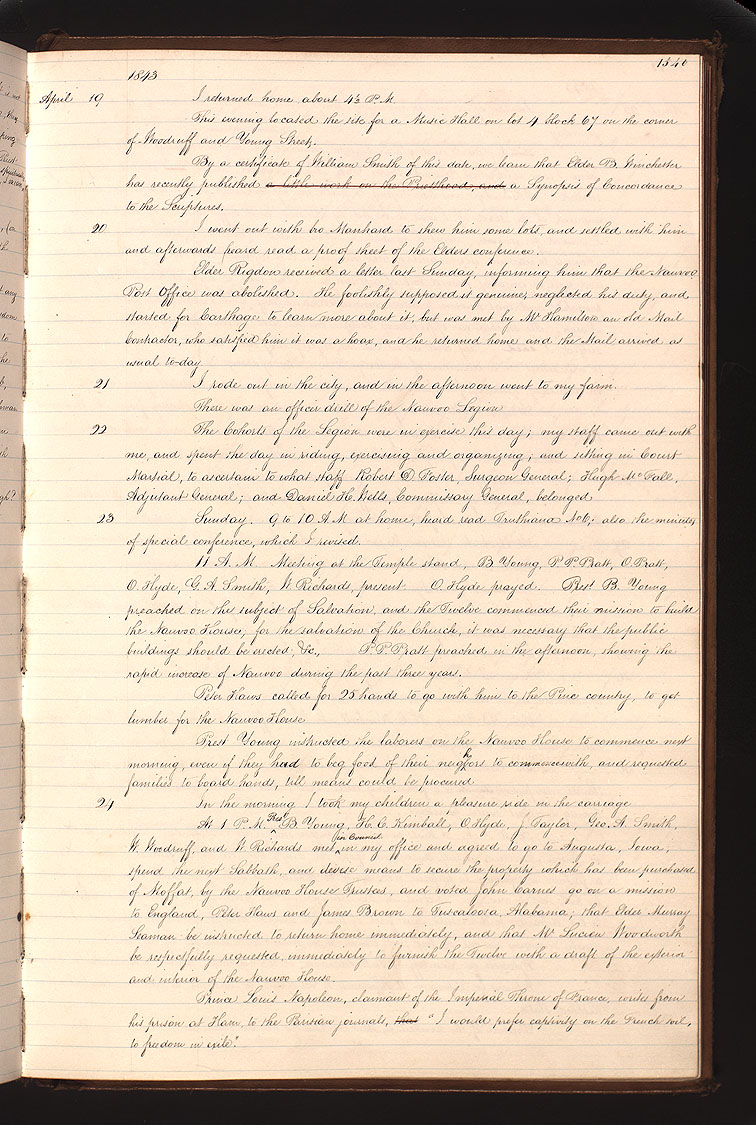 1843
1546
April 19 I returned home about 4½ P.M.
This evening located the site for a Music Hall on lot 4 block 67 on the corner
of Woodruff and Young Streets.
By a certificate of William Smith of this date, we learn that Elder B. Winchester
has recently published a little work on the Priesthood, and a Synopsis of Concordance
to the Scriptures.
20 I went out with bro Manhard to shew him some lots, and settled with him
and afterwards heard read a proof sheet of the Elders conference.
Elder Rigdon received a letter last Sunday, informing him that the Nauvoo
Post Office was abolished. He foolishly supposed it genuine, neglected his duty, and
started for Carthage to learn more about it, but was met by Mr Hamilton an old Mail
Contractor, who satisfied him it was a hoax, and he returned home and the Mail arrived as
usual to-day
21 I rode out in the city, and in the afternoon went to my farm.
There was an officer drill of the Nauvoo Legion
22 The Cohorts of the Legion were in exercise this day; my staff came out with
me, and spent the day in riding, exercising and organizing; and sitting in Court
Martial, to ascertain to what staff Robert D. Foster, Surgeon General; Hugh McFall,
Adjutant General; and Daniel H. Wells, Commissary General, belonged
23 Sunday. 9 to 10 A.M. at home, heard read Truthiana No 6; also the minutes
of special conference, which I revised.
11 A.M. Meeting at the Temple stand, B Young, P.P. Pratt, O. Pratt,
O. Hyde, G. A. Smith, W. Richards, present. O. Hyde prayed. Prest B. Young
preached on the subject of Salvation, and the Twelve commenced their mission to build
the Nauvoo House; for the salvation of the Church, it was necessary that the public
buildings should be erected, &c., P.P. Pratt preached in the afternoon, showing the
rapid increase of Nauvoo during the past three years.
Peter Haws called for 25 hands to go with him to the Pine country, to get
lumber for the Nauvoo House
Prest Young instructed the laborers on the Nauvoo House to commence next
morning, even if they had to beg food of their neighbors to commence with, and requested
families to board hands, till means could be procured
24 In the morning I took my children a pleasure ride in the carriage
At 1 P.M. Prest B. Young, H. C. Kimball, O. Hyde, J. Taylor, Geo. A. Smith,
W. Woodruff, and W. Richards met in Council in my office and agreed to go to Augusta, Iowa,
spend the next Sabbath, and devise means to secure the property which has been purchased
of Moffat, by the Nauvoo House Trustees, and voted John Carnes go on a mission
to England, Peter Haws and James Brown to Tuscaloosa, Alabama; that Elder Murray
Seaman be instructed to return home immediately, and that Mr Lucien Woodworth
be respectfully requested, immediately to furnish the Twelve with a draft of the exterior
and interior of the Nauvoo House.
Prince Louis Napoleon, claimant of the Imperial Throne of France, writes from
his prison at Ham, to the Parisian journals, that "I would prefer captivity on the French soil,
to freedom in exile".